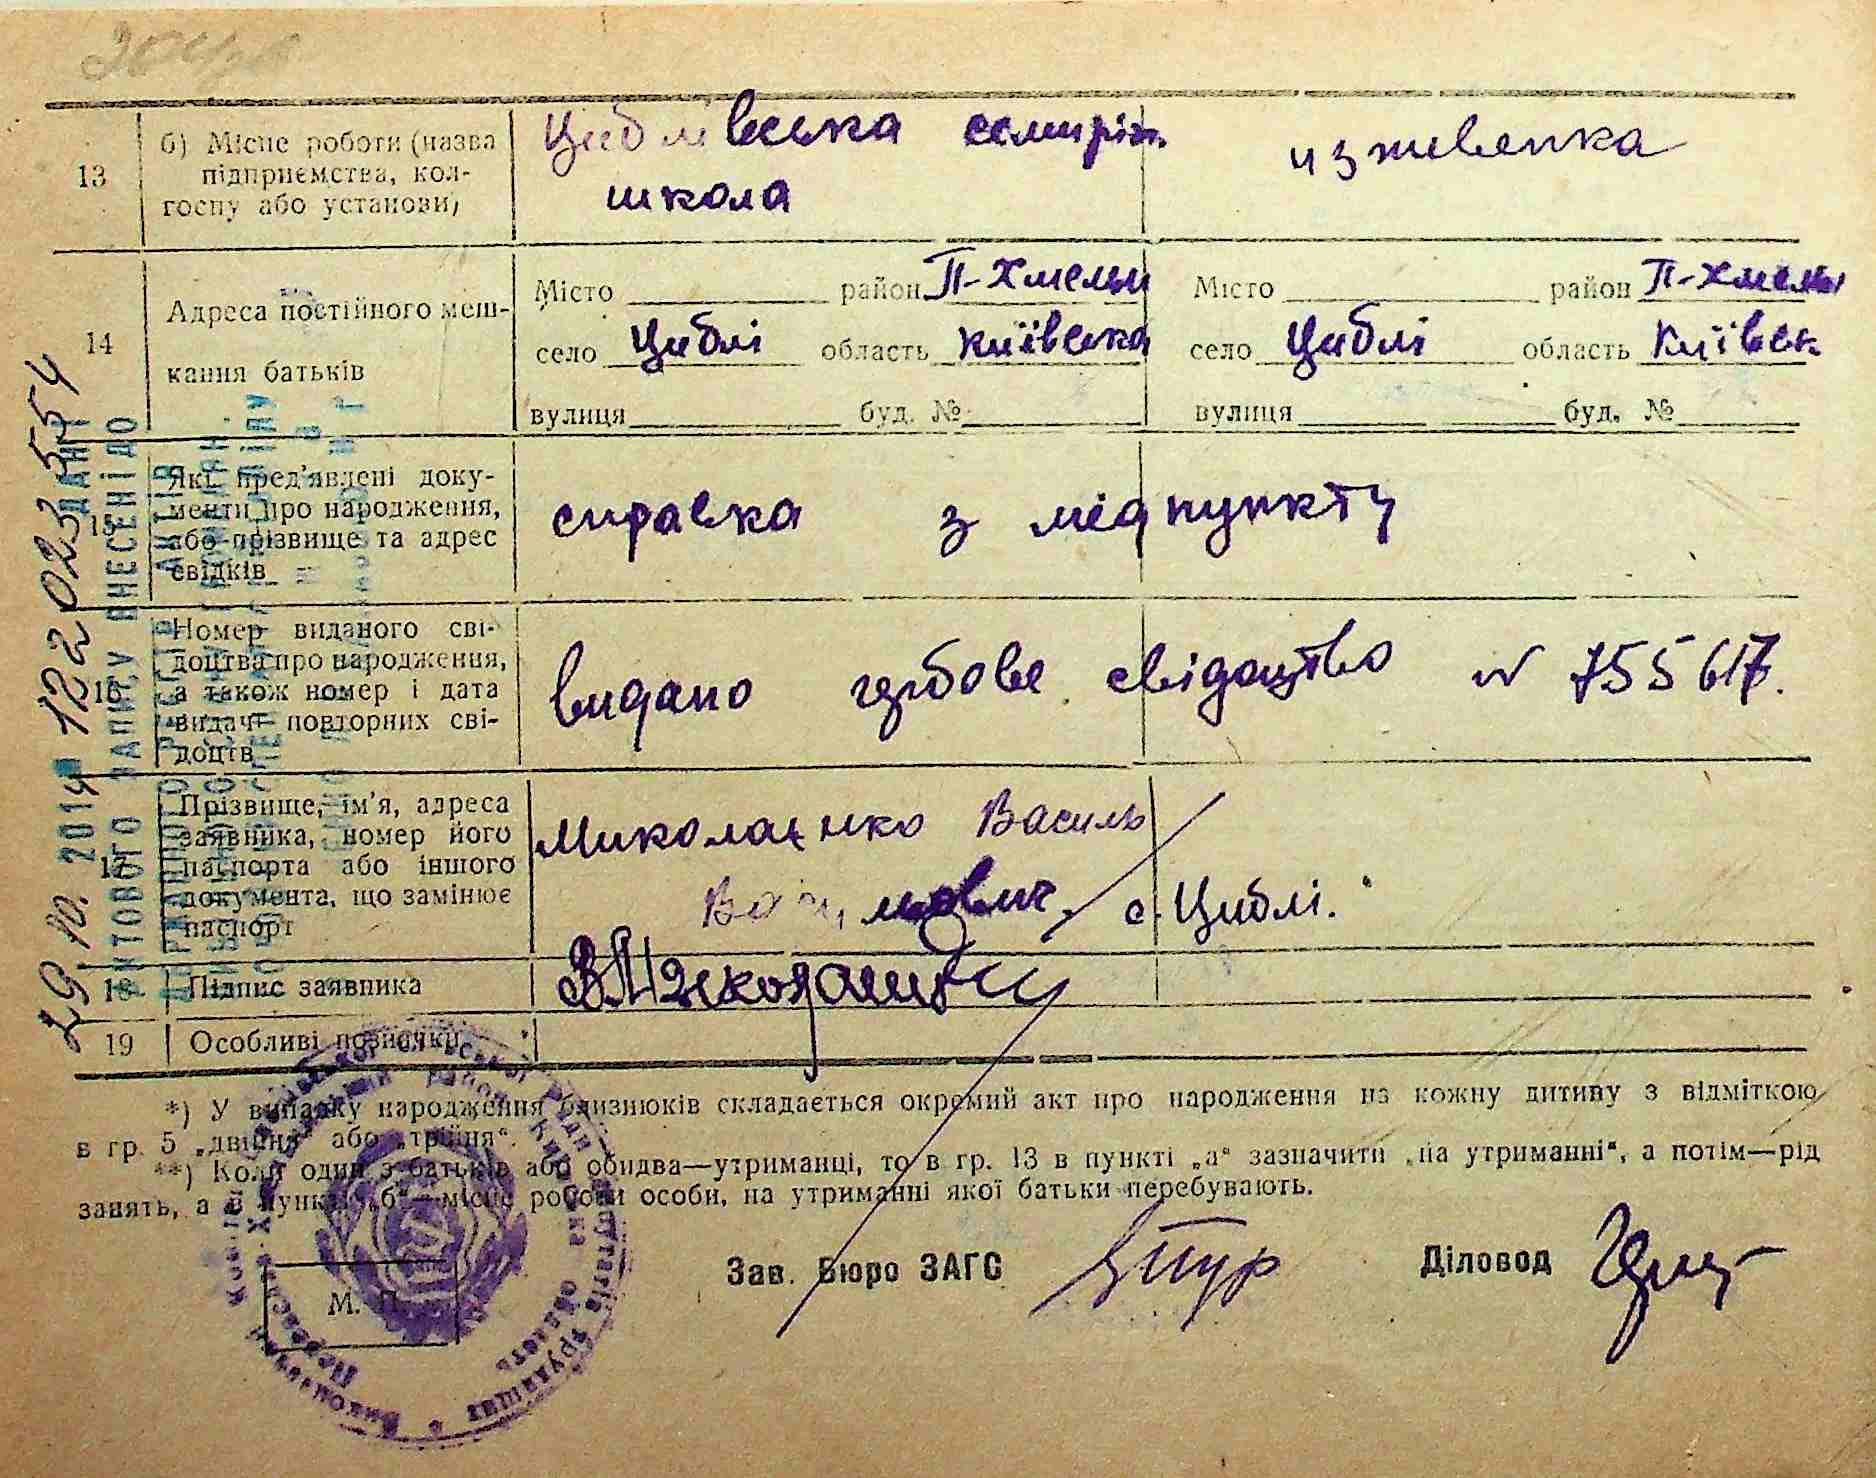 13
б) Місце роботи (назва підприємства, колгоспу або установи)
Циблівська семиріч.
школа
иждивенка
14
Адреса постійного меш-
кання батьків
Місто район П-Хмельн
село Циблі область Київська
вулиця буд. №
Місто район П-Хмельн
село Циблі область Київськ
вулиця буд. №
15
Які пред'явлені доку-
менти про народження,
або прізвище та адрес
свідків
справка з медпункту
16
Номер виданого сві-
доцтва про народження,
а також номер і дата
видачі повторних сві-
доцтв
видано гербове свідоцтво № 755617.
17
Прізвище, ім'я, адреса
заявника, номер його
паспорта або іншого
документа, що замінює
паспорт
Миколаенко Василь
с. Циблі.
18
Підпис заявника
19
Особливі позначки
*) У випадку народження близнюків складається окремий акт про народження на кожну дитину з відміткою
в гр. 5 „двійня“ або „трійня“.
**) Коли один з батьків або обидва—утриманці, то в гр. 13 в пункті „а“ зазначити „на утриманні“, а потім—рід
занять, а в пункті „б“—місце роботи особи, на утриманні якої батьки перебувають.
Зав. Бюро ЗАГС
Діловод
М. П.
29.10.2014 12202355